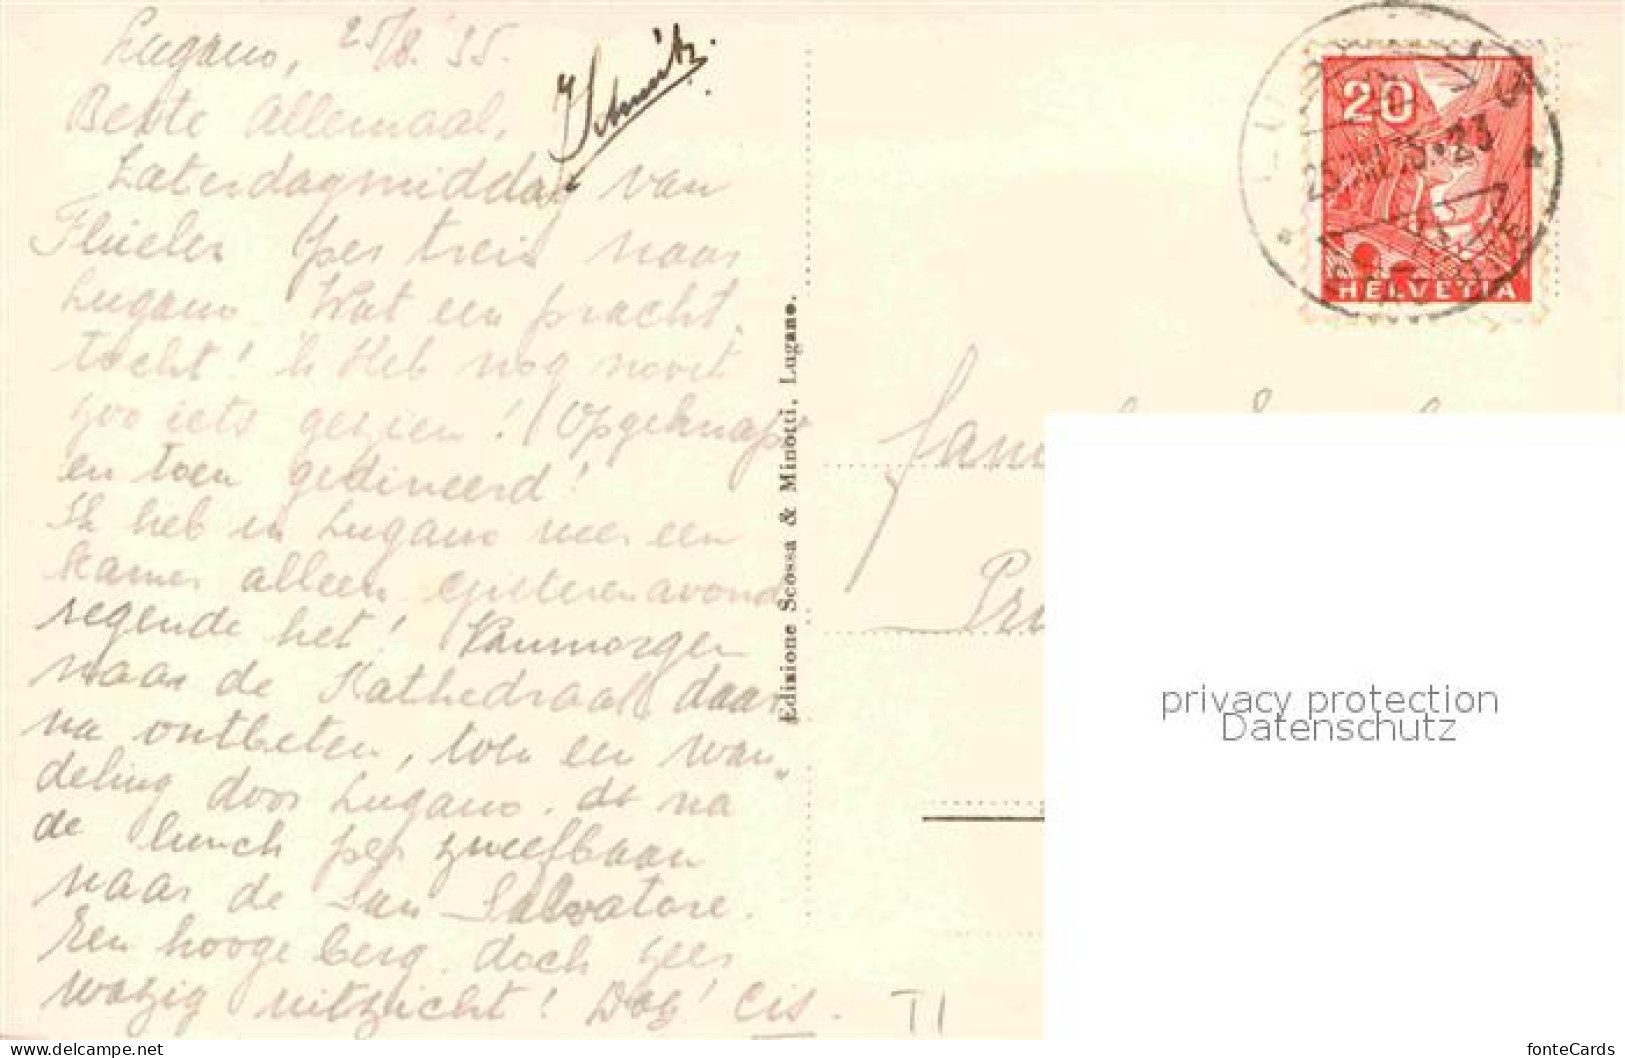 Lugano, 25/8.'35.
Beste Allemaal,
Zaterdagmiddag van
Flüelen per trein naar
Lugano. Wat een pracht
tocht! 'k Heb nog nooit
zoo iets gezien! Opgeknapt
en toen gedineerd!
Ik heb in Lugano weer een
kamer alleen. Gisterenavond
regende het! Vanmorgen
naar de Kathedraal daar
na ontbeten, toen een wan„
deling door Lugano. da na
de lunch per zweefbaan
naar de San Salvatore.
Een hooge berg. doch zeer
wazig uitzicht! Dag! Cis.
Schmitz.
Edizione Scossa & Minotti, Lugano.
20
HELVETIA
Fam
TI
privacy protection
Datenschutz
www.delcampe.net
fonteCards